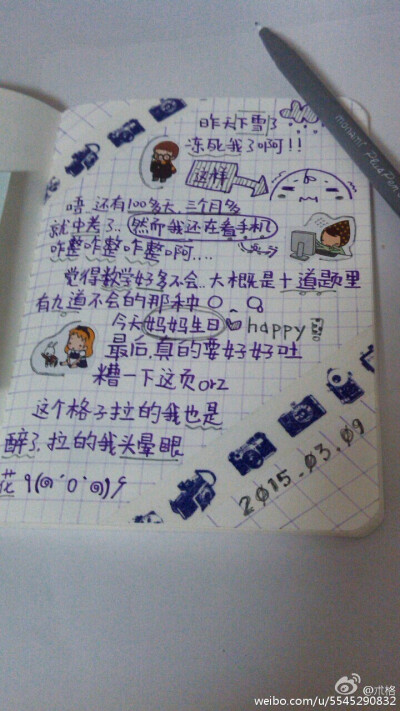 昨天下雪了
冻死我了啊!!
这样
唔 还有100多天,三个月多
就中考了..然而我还在看手机
咋整咋整咋整啊....
觉得数学好多不会..大概是十道题里
有九道不会的那种 O_Q
今天妈妈生日 happy!
最后,真的要好好吐
糟一下这页orz
这个格子拉的我也是
醉了.拉的我头晕眼
花 9(๑´0`๑)۶
2015.03.09
monami Plus Pen
@朮格
weibo.com/u/5545290832